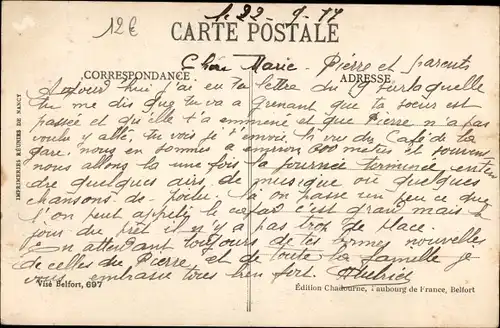 12€
1. 22-9-17
CARTE POSTALE
Chère Marie - Pierre et parents
CORRESPONDANCE
ADRESSE
Aujourd'hui j'ai eu ta lettre du 9 sur laquelle
tu me dis que tu va a que ta soeur est
passée et qu'elle t'a emmené et que Pierre n'a pas
voulu y allé, tu vois je t'envoie la vue du Café de la
gare, nous en sommes a environ 600 metres et souvent
nous allons la une fois la journée terminée enten
dre quelques airs de musique ou quelques
chansons de Poilu la on passe un peu ce que
l'on peut appelé le c'est grand mais
jour du prêt il n'y a pas trop de place.
En attendant toujours de tes bonnes nouvelles
de celles du Pierre, et de toute la famille je
vous embrasse tous bien fort
IMPRIMERIES RÉUNIES DE NANCY
Visé Belfort, 697
Édition Chadourne, Faubourg de France, Belfort